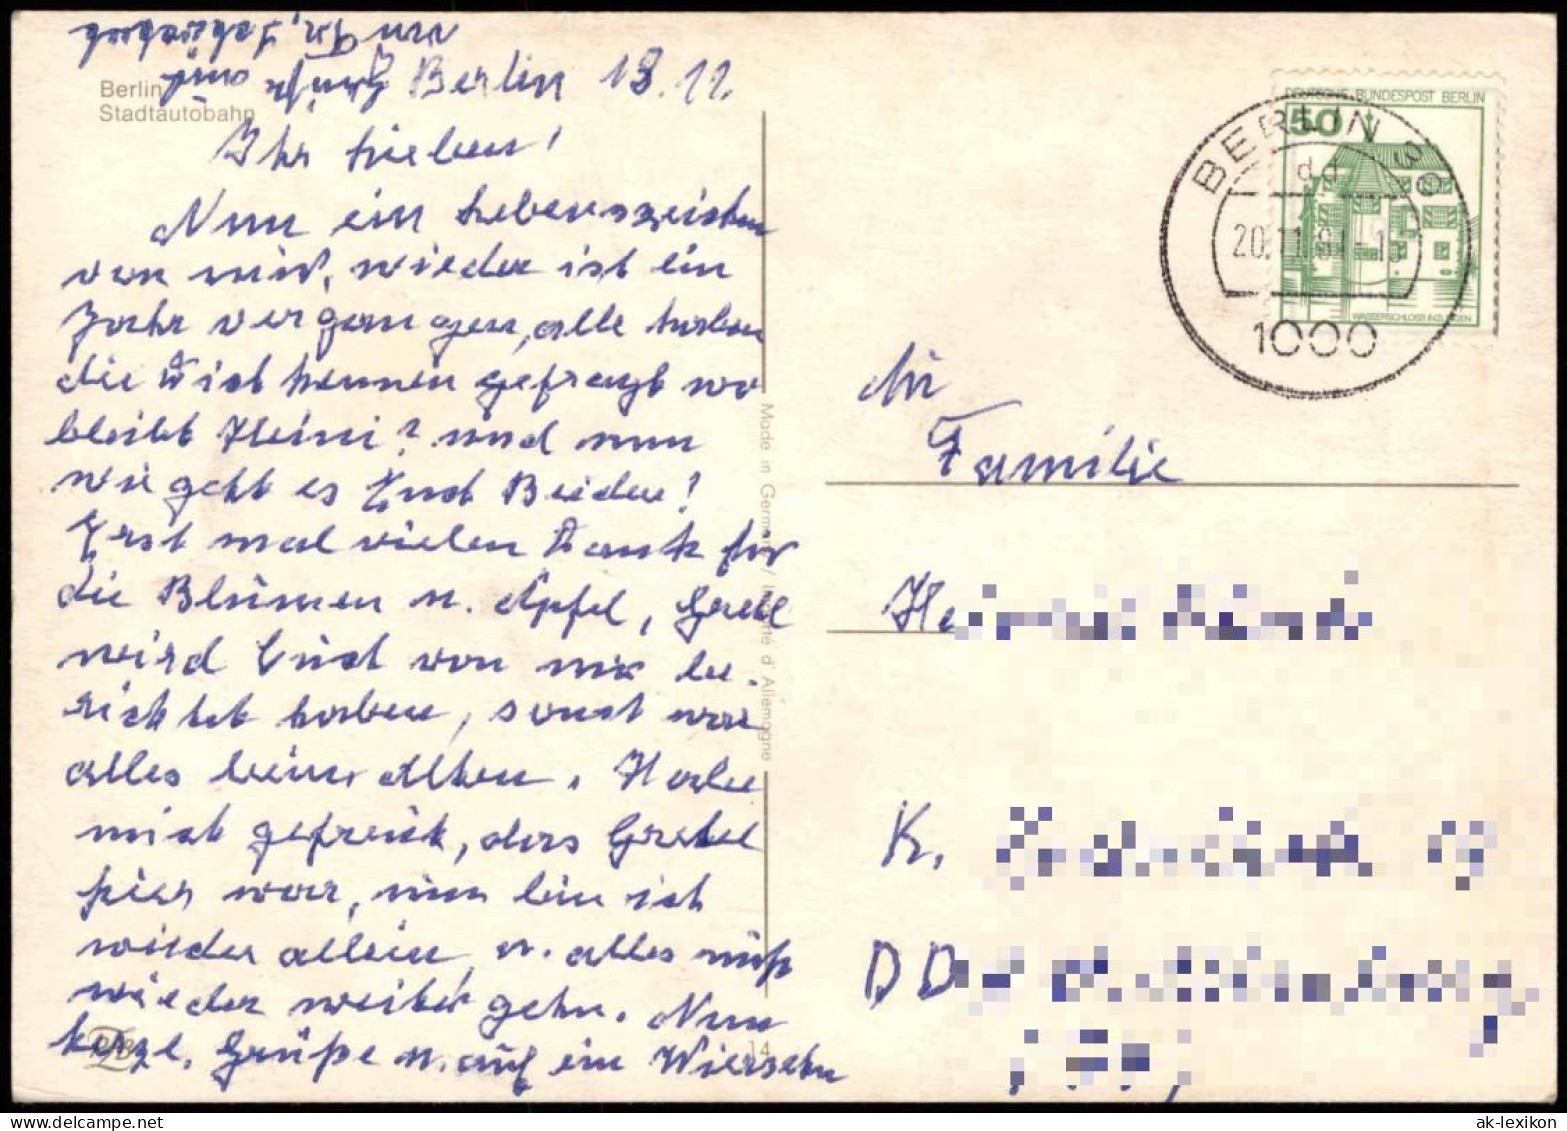 Berlin
Stadtautobahn
Berlin 13.11.
Ihr Lieben!
Nun ein Lebenszeichen
von mir, wieder ist ein
Jahr vergangen, alle haben
die mich kennen gefragt wo
bleibt Heini? und nun
wie geht es Euch Beiden!
Erst mal vielen Dank für
die Blumen u. Äpfel, Gretel
wird Euch von mir be-
richtet haben, sonst war
alles beim Alten. Habe
mich gefreut, das Gretel
hier war, nun bin ich
wieder allein u. alles muß
wieder weiter gehn. Nun
Grüße u. auf ein Wiersehn
Made in Germany / Imprimé d'Allemagne
14
DEUTSCHE BUNDESPOST BERLIN
50
WASSERSCHLOSS INZLINGEN
BERLIN 36
dd
20.11.
1000
An
Familie
He
K.
DD
ak-lexikon